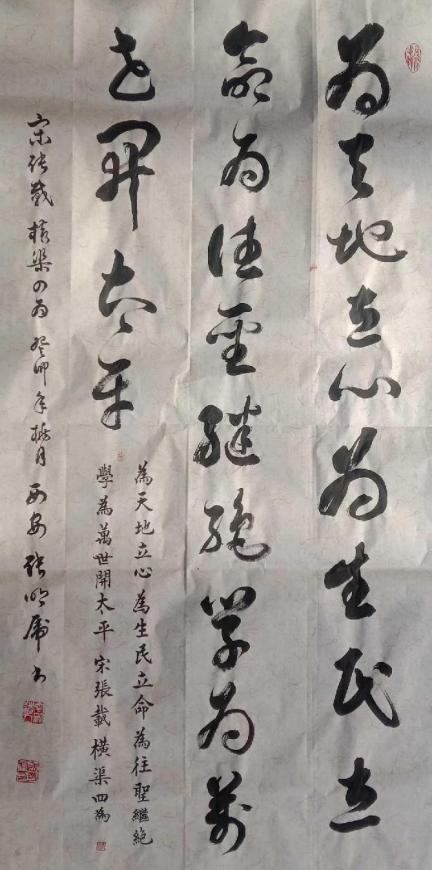 為天地立心為生民立
命為往聖繼絕學為萬
世開太平
為天地立心為生民立命為往聖繼絕
學為萬世開太平宋張載橫渠四為
宋張載橫渠四為癸卯年桃月西安張明虎书